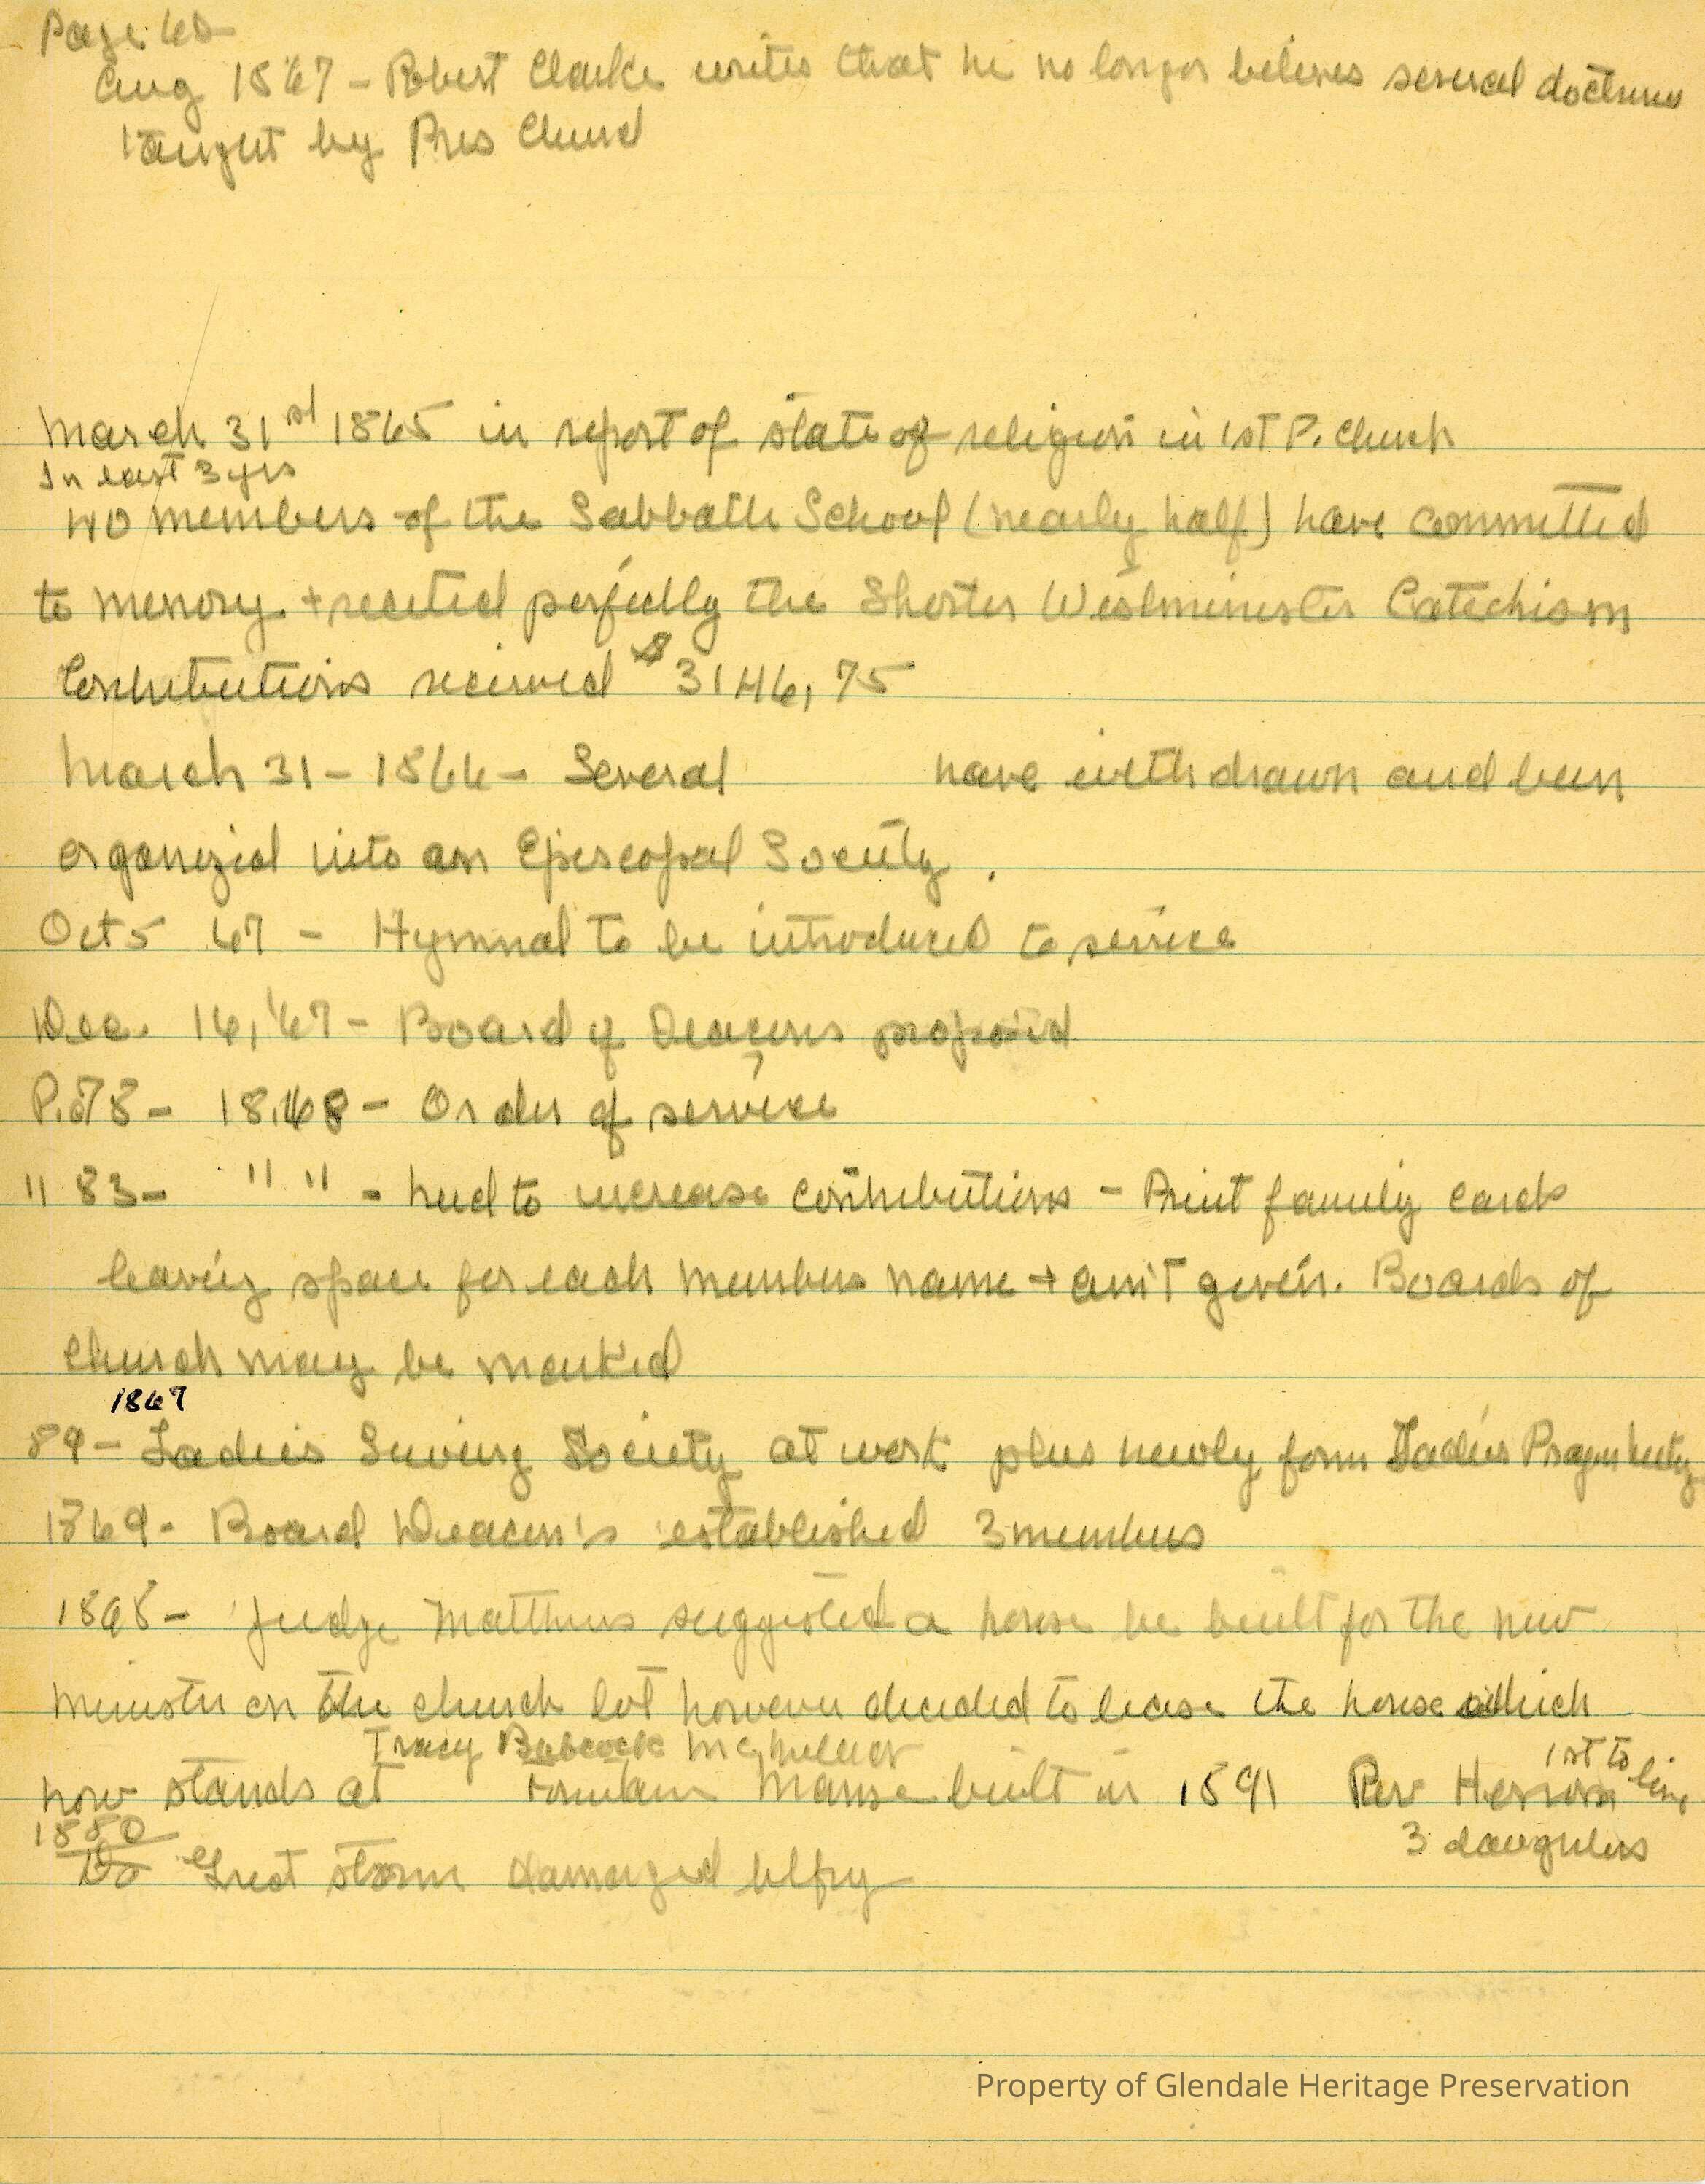 Page 60
Aug 1867 - Robert Clarke writes that he no longer believes several doctrines
taught by Pres Church
March 31st 1865 in report of state of religion in 1st P. Church
In last 3 yrs
40 members of the Sabbath School (nearly half) have committed
to memory + recited perfectly the Shorter Westminster Catechism
Contributions received $3146,75
March 31 - 1866 - Several have withdrawn and been
organized into an Episcopal Society.
Oct 5 67 - Hymnal to be introduced to service
Dec. 16, '67 - Board of Deacons proposed
P. 78 - 1868 - Order of service
" 83 - " " - need to increase contributions - Print family cards
leaving space for each members name + am't given. Boards of
Church may be marked
1867
89 - Ladies Sewing Society at work plus newly form Ladies Prayer
1869 - Board Deacon's established 3 members
1868 - Judge Matthews suggested a house be built for the new
minister on the church lot however decided to lease the house which
Tracy Babcock
now stands at Fountain Manse built in 1891 Rev Herron 1st to live
3 daughters
1880
Great storm damaged belfry
Property of Glendale Heritage Preservation